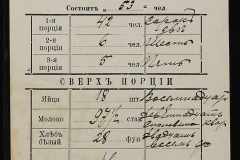 Состоитъ „ 53 „ чел
1-я порція 42 чел. Сорокъ двѣ
2-я порція 6 чел. Шесть
3-я порція 5 чел. Пять
СВЕРХЪ ПОРЦІИ
Яйца 18 шт. Восемнадцать
Молоко 97½ стак.
Хлѣбъ бѣлый 28 фун. Двадцать восемь